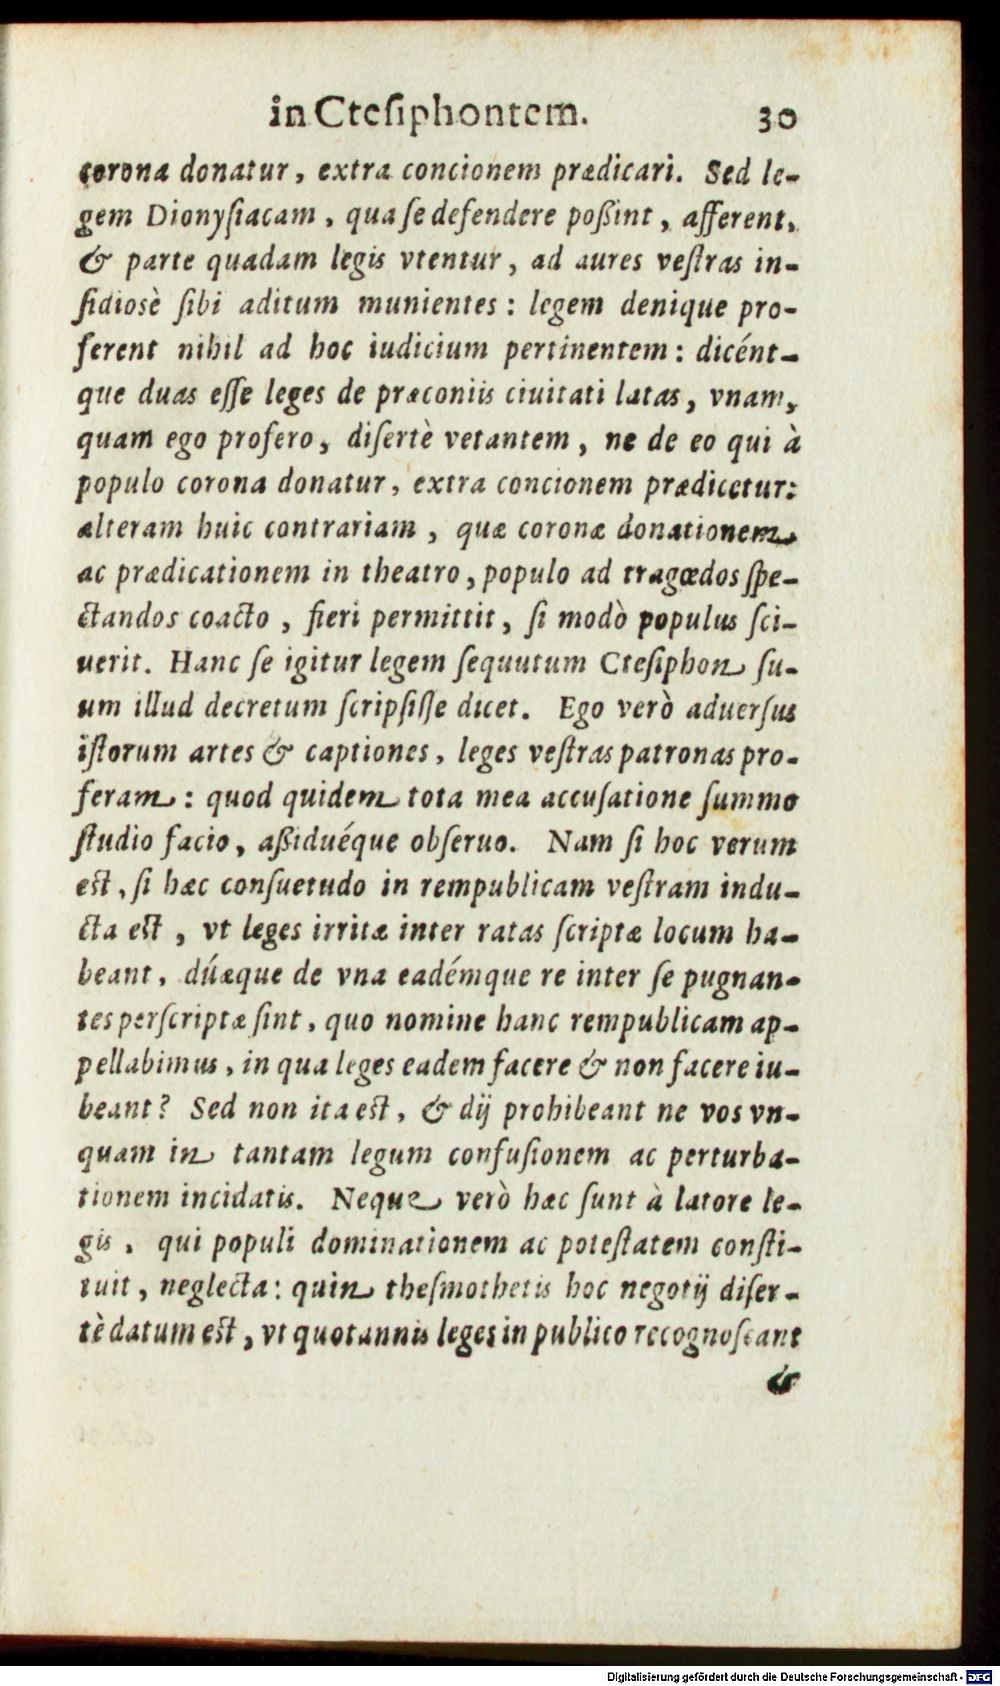 in Ctesiphontem. 30
corona donatur, extra concionem prædicari. Sed le-
gem Dionyſiacam, qua ſe defendere poßint, afferent,
& parte quadam legis vtentur, ad aures veſtras in-
ſidiosè ſibi aditum munientes: legem denique pro-
ferent nihil ad hoc iudicium pertinentem: dicént-
que duas eſſe leges de præconiis ciuitati latas, vnam,
quam ego profero, diſertè vetantem, ne de eo qui à
populo corona donatur, extra concionem prædicetur:
alteram huic contrariam, quæ coronæ donationem
ac prædicationem in theatro, populo ad tragœdos ſpe-
ctandos coacto, fieri permittit, ſi modò populus ſci-
uerit. Hanc ſe igitur legem ſequutum Cteſiphon ſu-
um illud decretum ſcripſiſſe dicet. Ego verò aduerſus
iſtorum artes & captiones, leges veſtras patronas pro-
feram: quod quidem tota mea accuſatione ſummo
ſtudio facio, aßiduéque obſeruo. Nam ſi hoc verum
est, ſi hæc conſuetudo in rempublicam veſtram indu-
cta est, vt leges irritæ inter ratas ſcriptæ locum ha-
beant, dúæque de vna eadémque re inter ſe pugnan-
tes perſcriptæ ſint, quo nomine hanc rempublicam ap-
pellabimus, in qua leges eadem facere & non facere iu-
beant? Sed non ita est, & dij prohibeant ne vos vn-
quam in tantam legum confuſionem ac perturba-
tionem incidatis. Neque verò hæc ſunt à latore le-
gis, qui populi dominationem ac poteſtatem conſti-
tuit, neglecta: quin theſmothetis hoc negotij diſer-
tè datum est, vt quotannis leges in publico recognoſcant
&
Digitalisierung gefördert durch die Deutsche Forschungsgemeinschaft - DFG